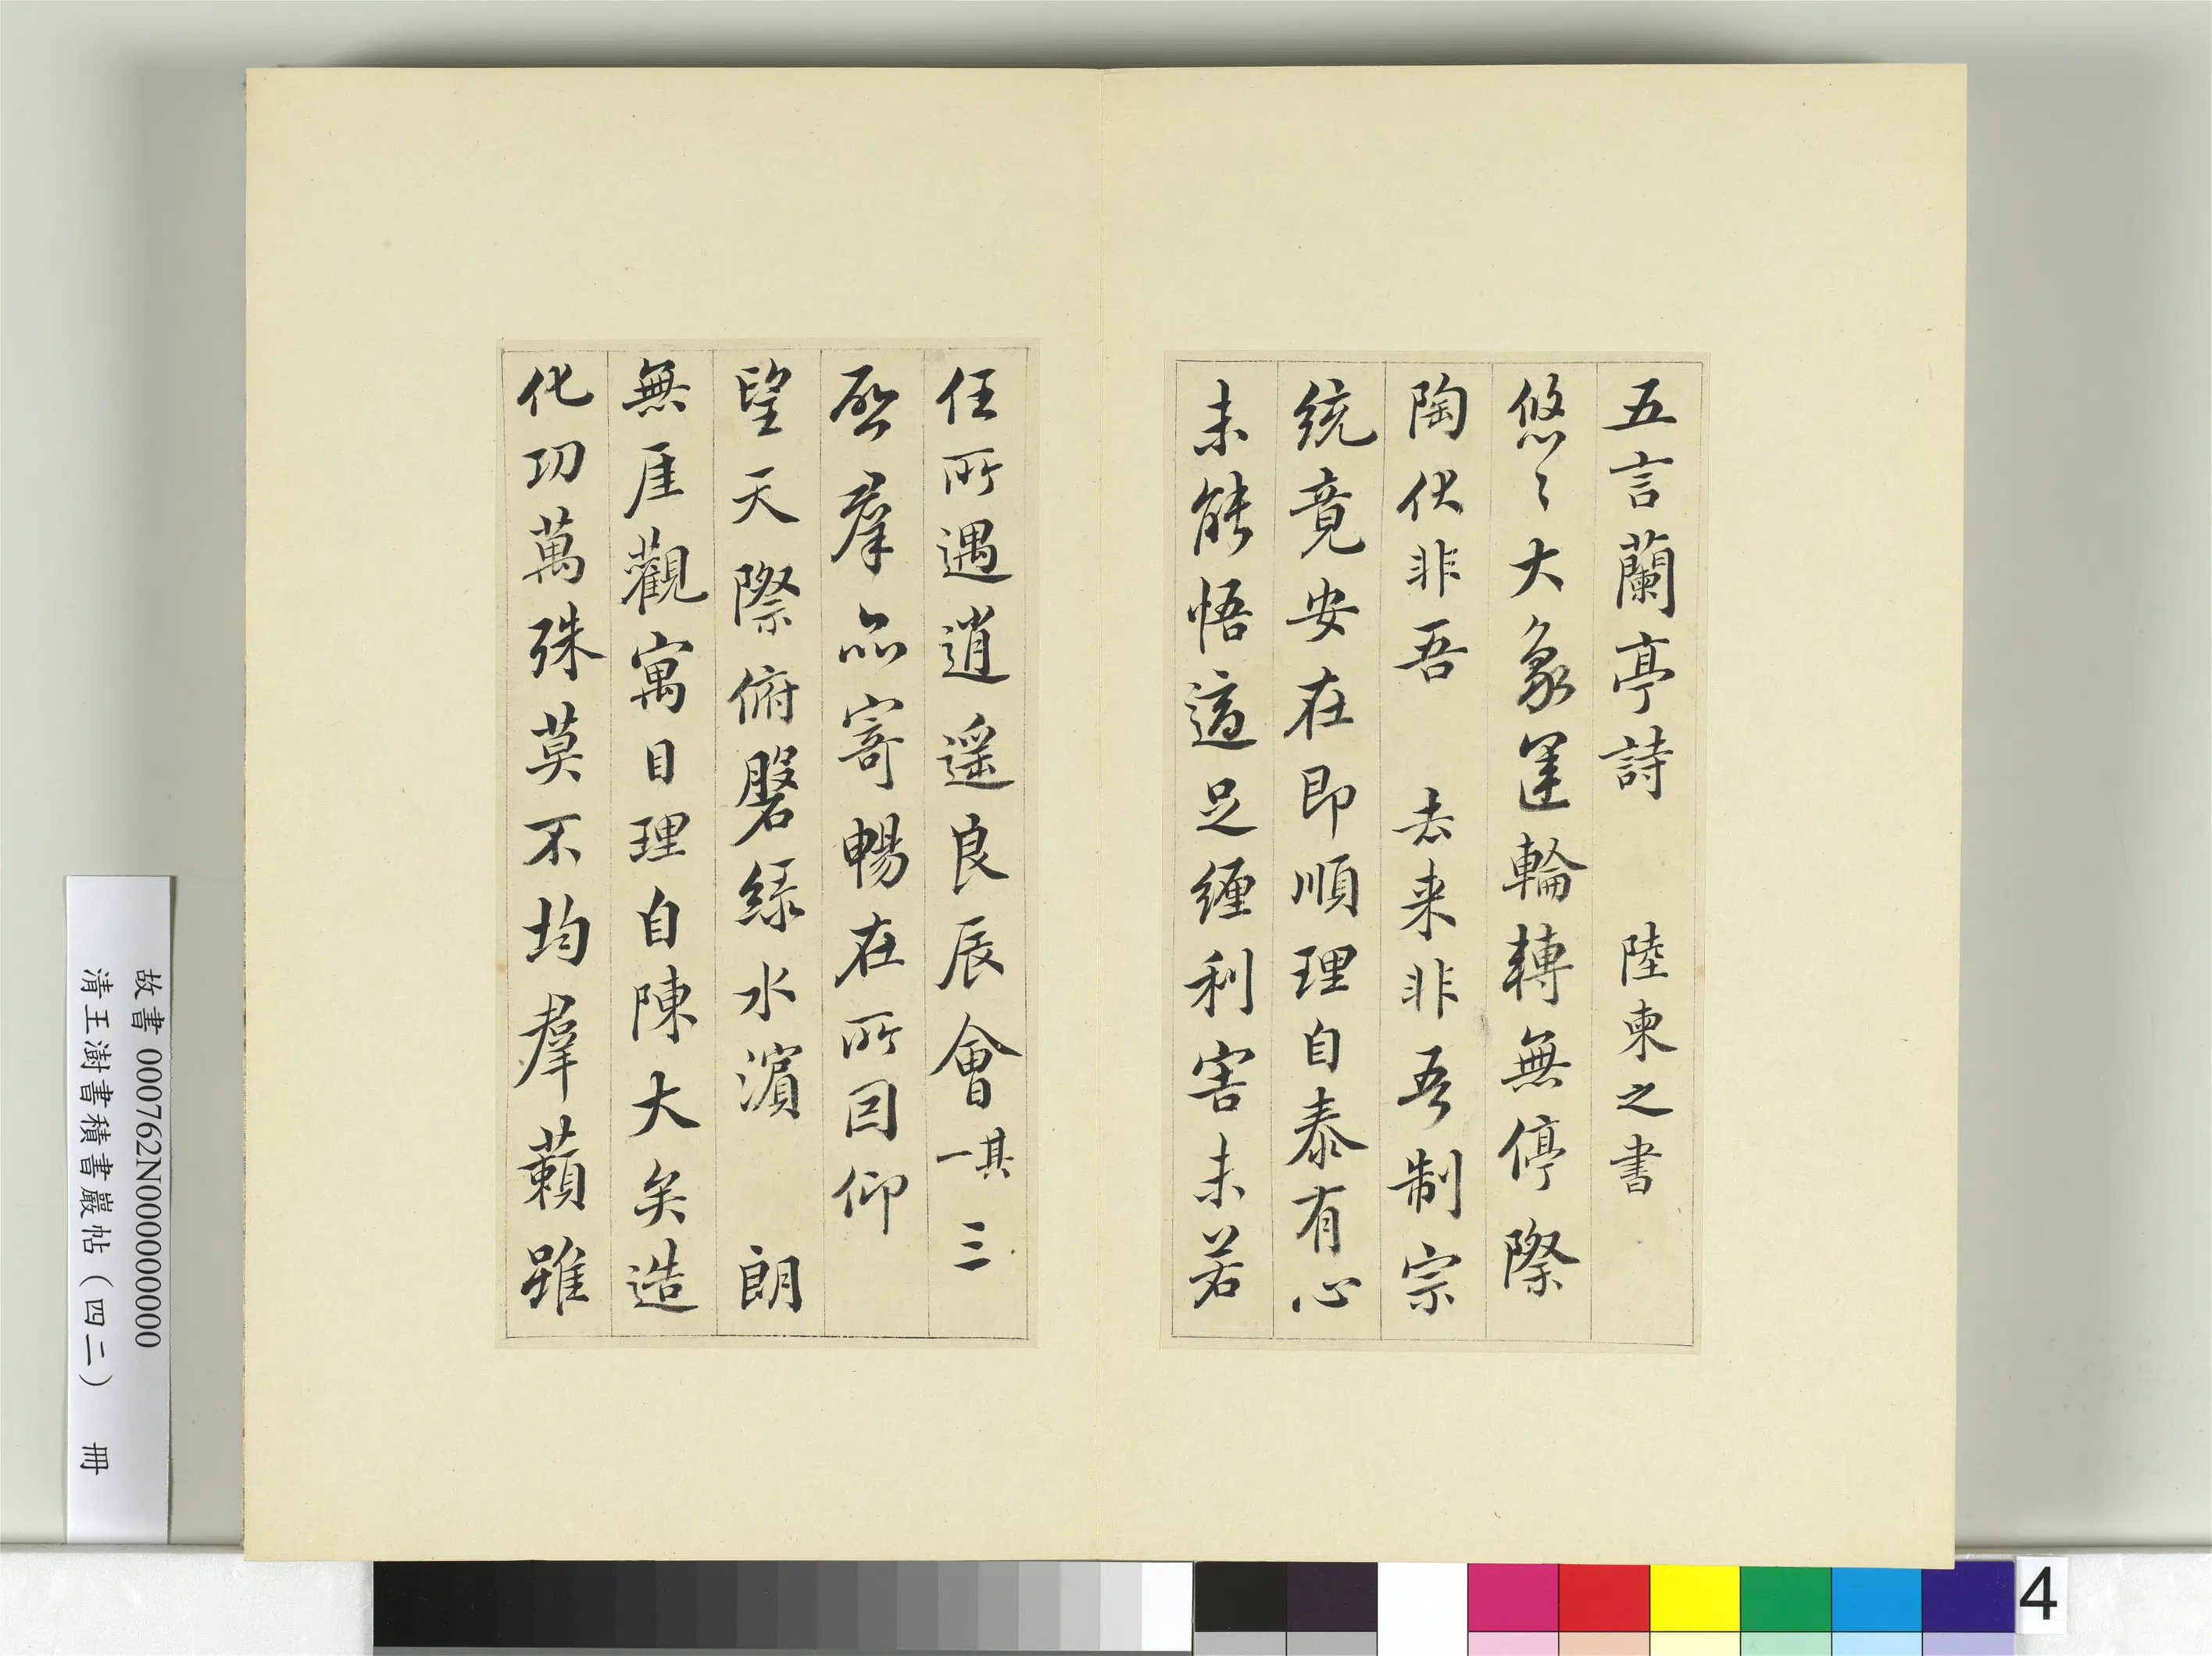 五言蘭亭詩 陸柬之書
悠〻大象運輪轉無停際
陶化非吾 去来非吾制宗
統竟安在即順理自泰有心
未能悟適足纏利害未若
任所遇逍遥良辰會一其三
啓羣品寄暢在所因仰
望天際俯磐緑水濵 朗
無厓觀寓目理自陳大矣造
化功萬殊莫不均羣藾雖
故書 000762N000000000
清王澍書積書巖帖（四二） 冊
4